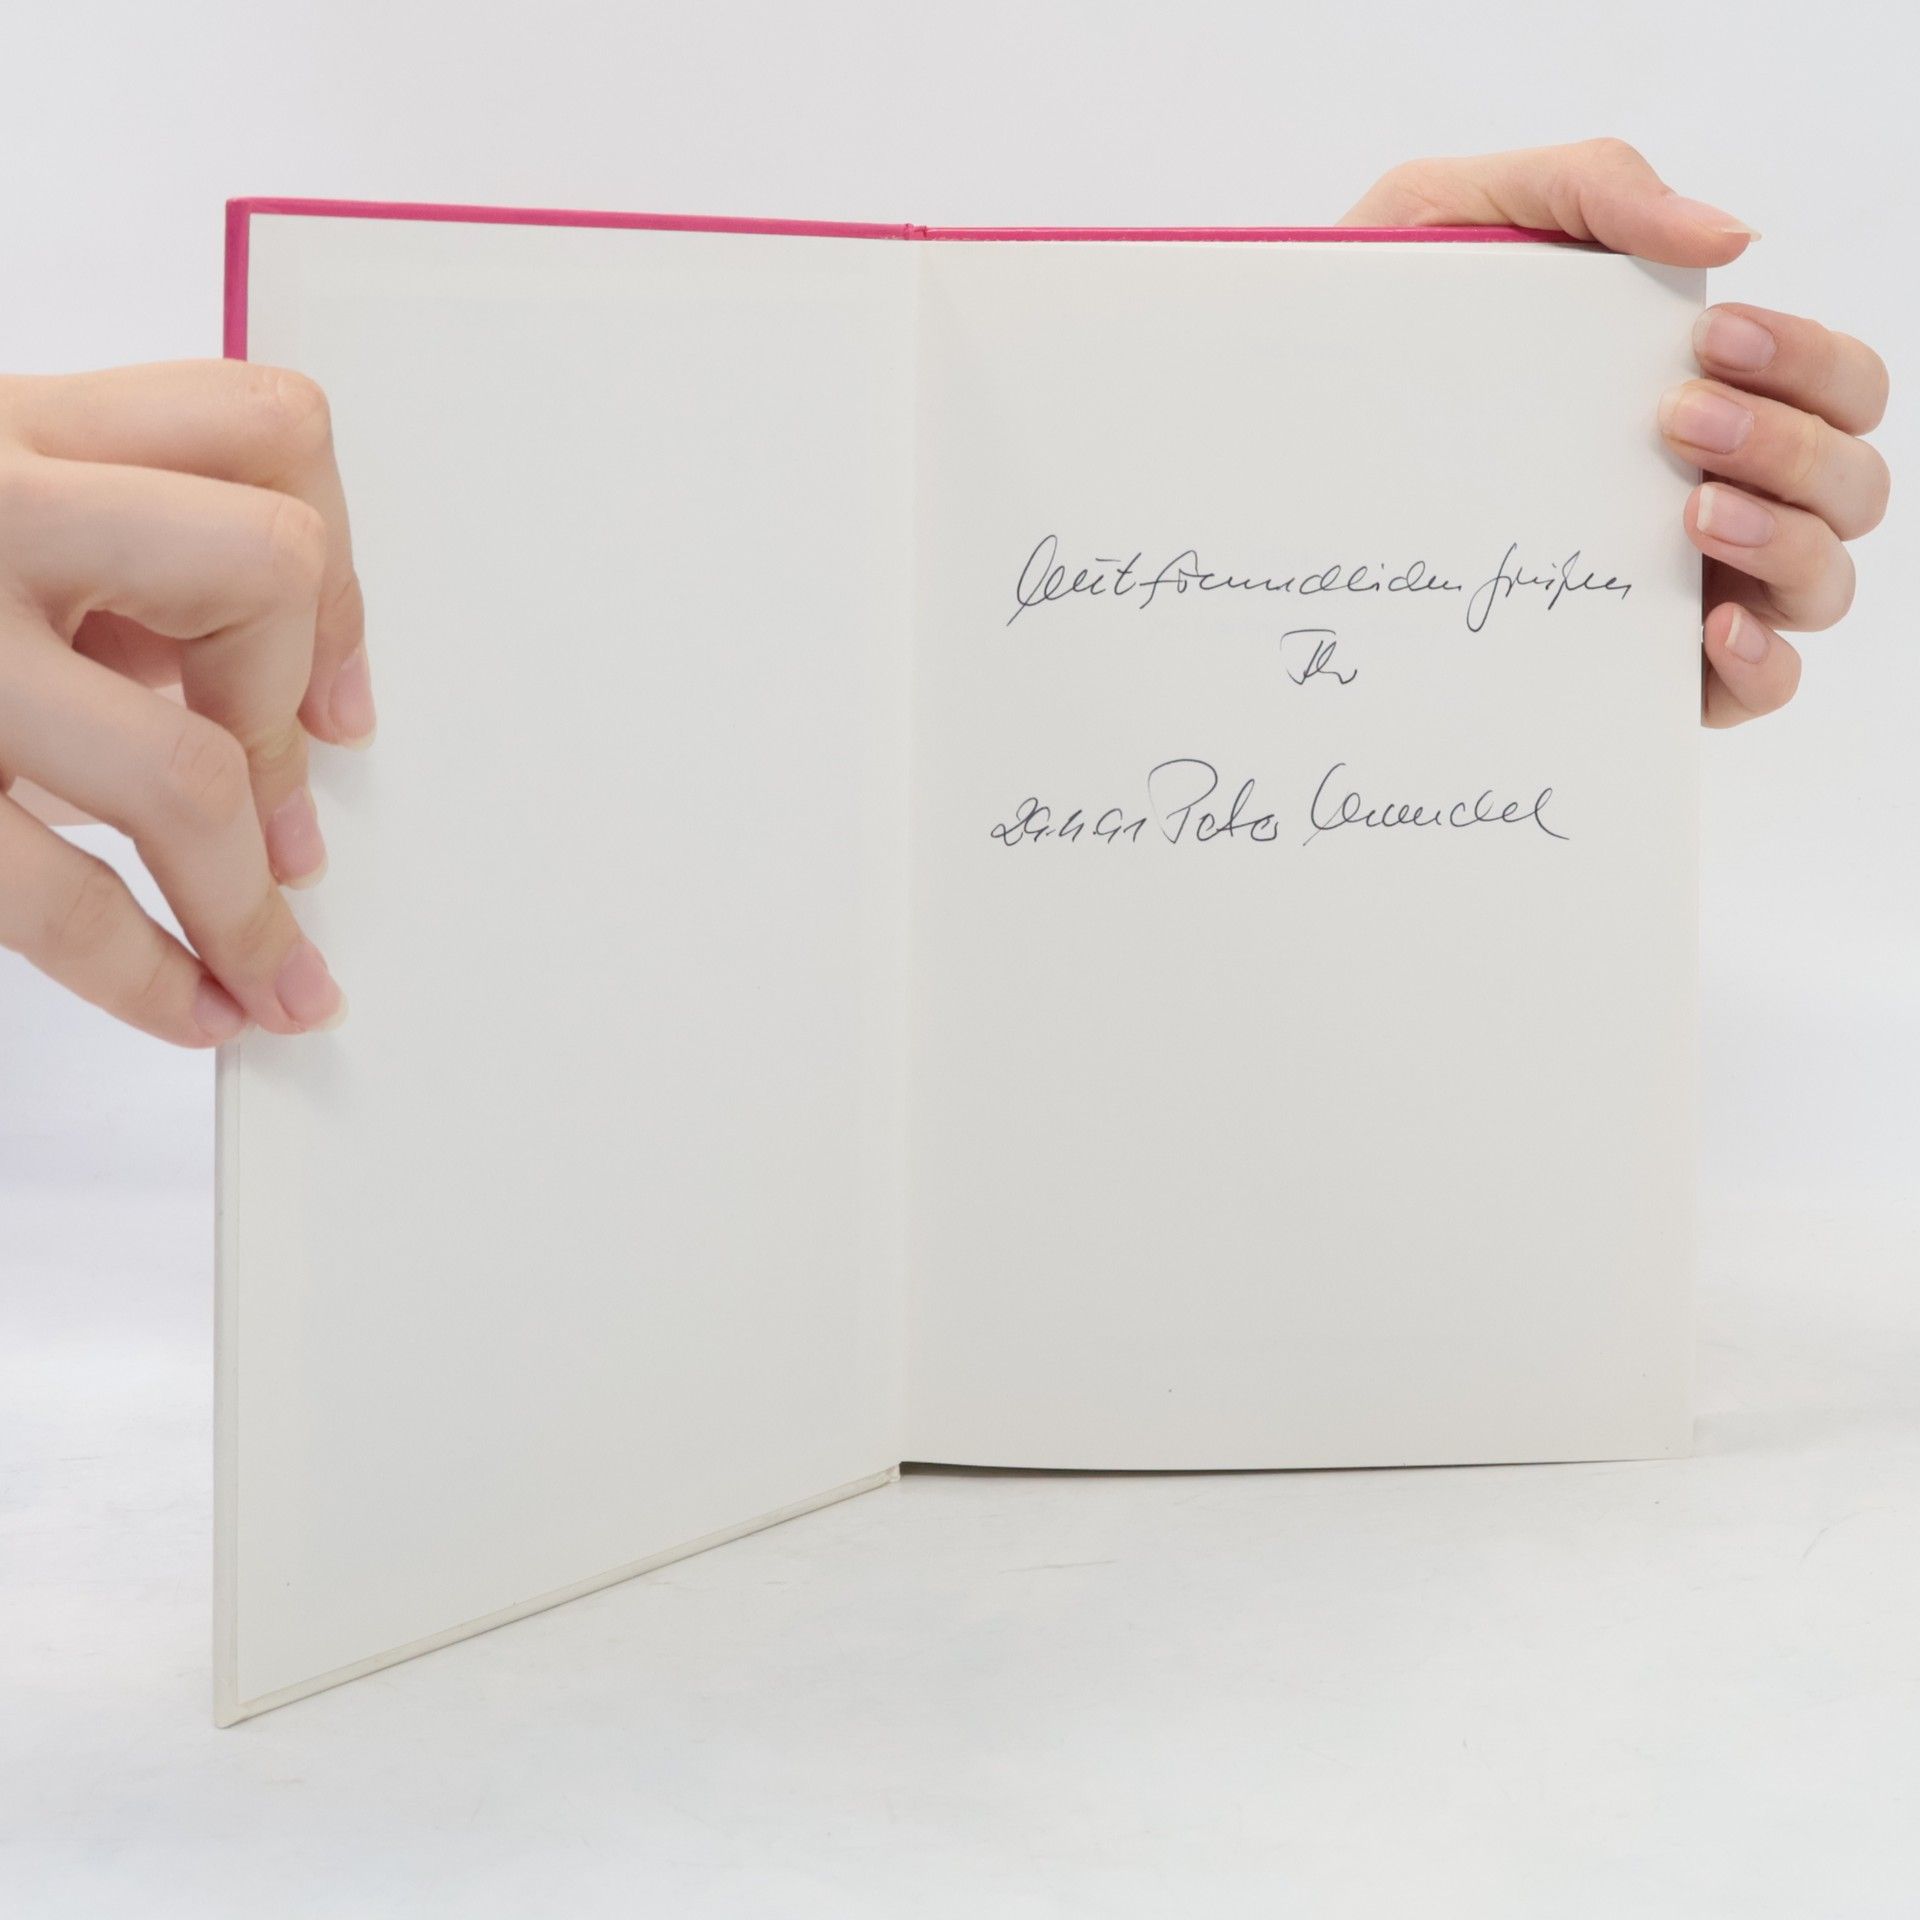 Mit freundlichen Grüßen
Ihr
29.4.91 Peter